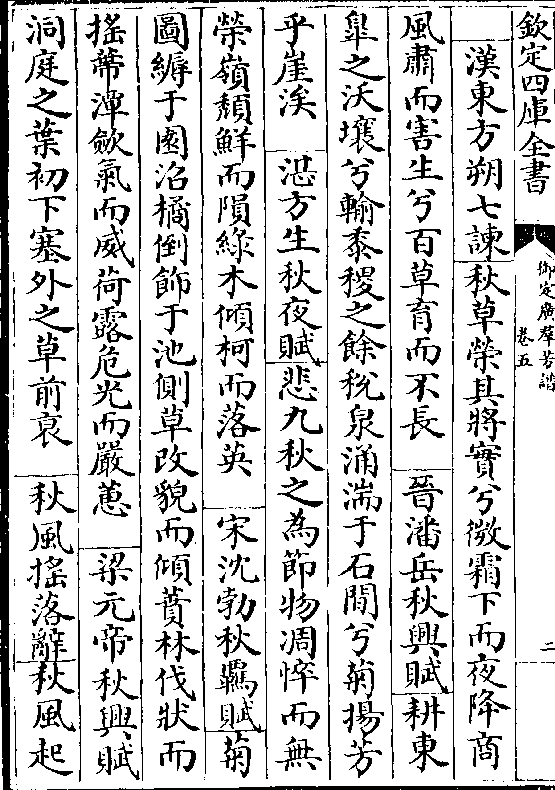 欽定四庫全書
御定廣羣芳譜
卷五
二
漢東方朔七諫秋草榮其將實兮微霜下而夜降商
風肅而害生兮百草育而不長 晉潘岳秋興賦耕東
臯之沃壤兮輸黍稷之餘稅泉涌湍于石間兮菊揚芳
乎崖涘 湛方生秋夜賦悲九秋之為節物凋悴而無
榮嶺頹鮮而隕綠木傾柯而落英 宋沈勃秋羈賦菊
圖縟于園沼橘倒飾于池側草改貌而傾蕡林伐狀而
揺蔕潭歛氣而威荷露危光而嚴蕙 梁元帝秋興賦
洞庭之葉初下塞外之草前衰 秋風搖落辭秋風起